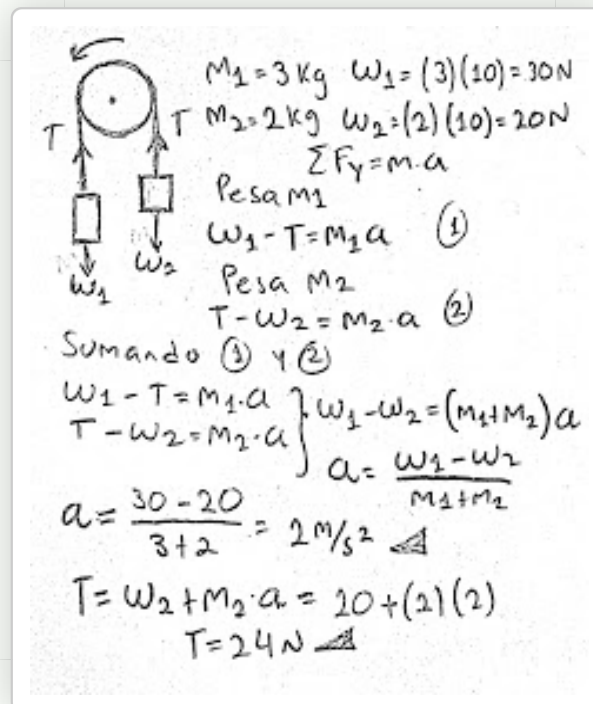 M1=3Kg W1=(3)(10)=30N
T T M2=2Kg W2=(2)(10)=20N
ΣFy=m.a
Pesa M1
W1-T=M1a ①
W1 W2
Pesa M2
T-W2=M2.a ②
Sumando ① y ②
W1-T=M1.a } W1-W2=(M1+M2)a
T-W2=M2.a
a= W1-W2
M1+M2
a= 30-20 = 2M/s²
3+2
T=W2+M2.a = 20+(2)(2)
T=24N